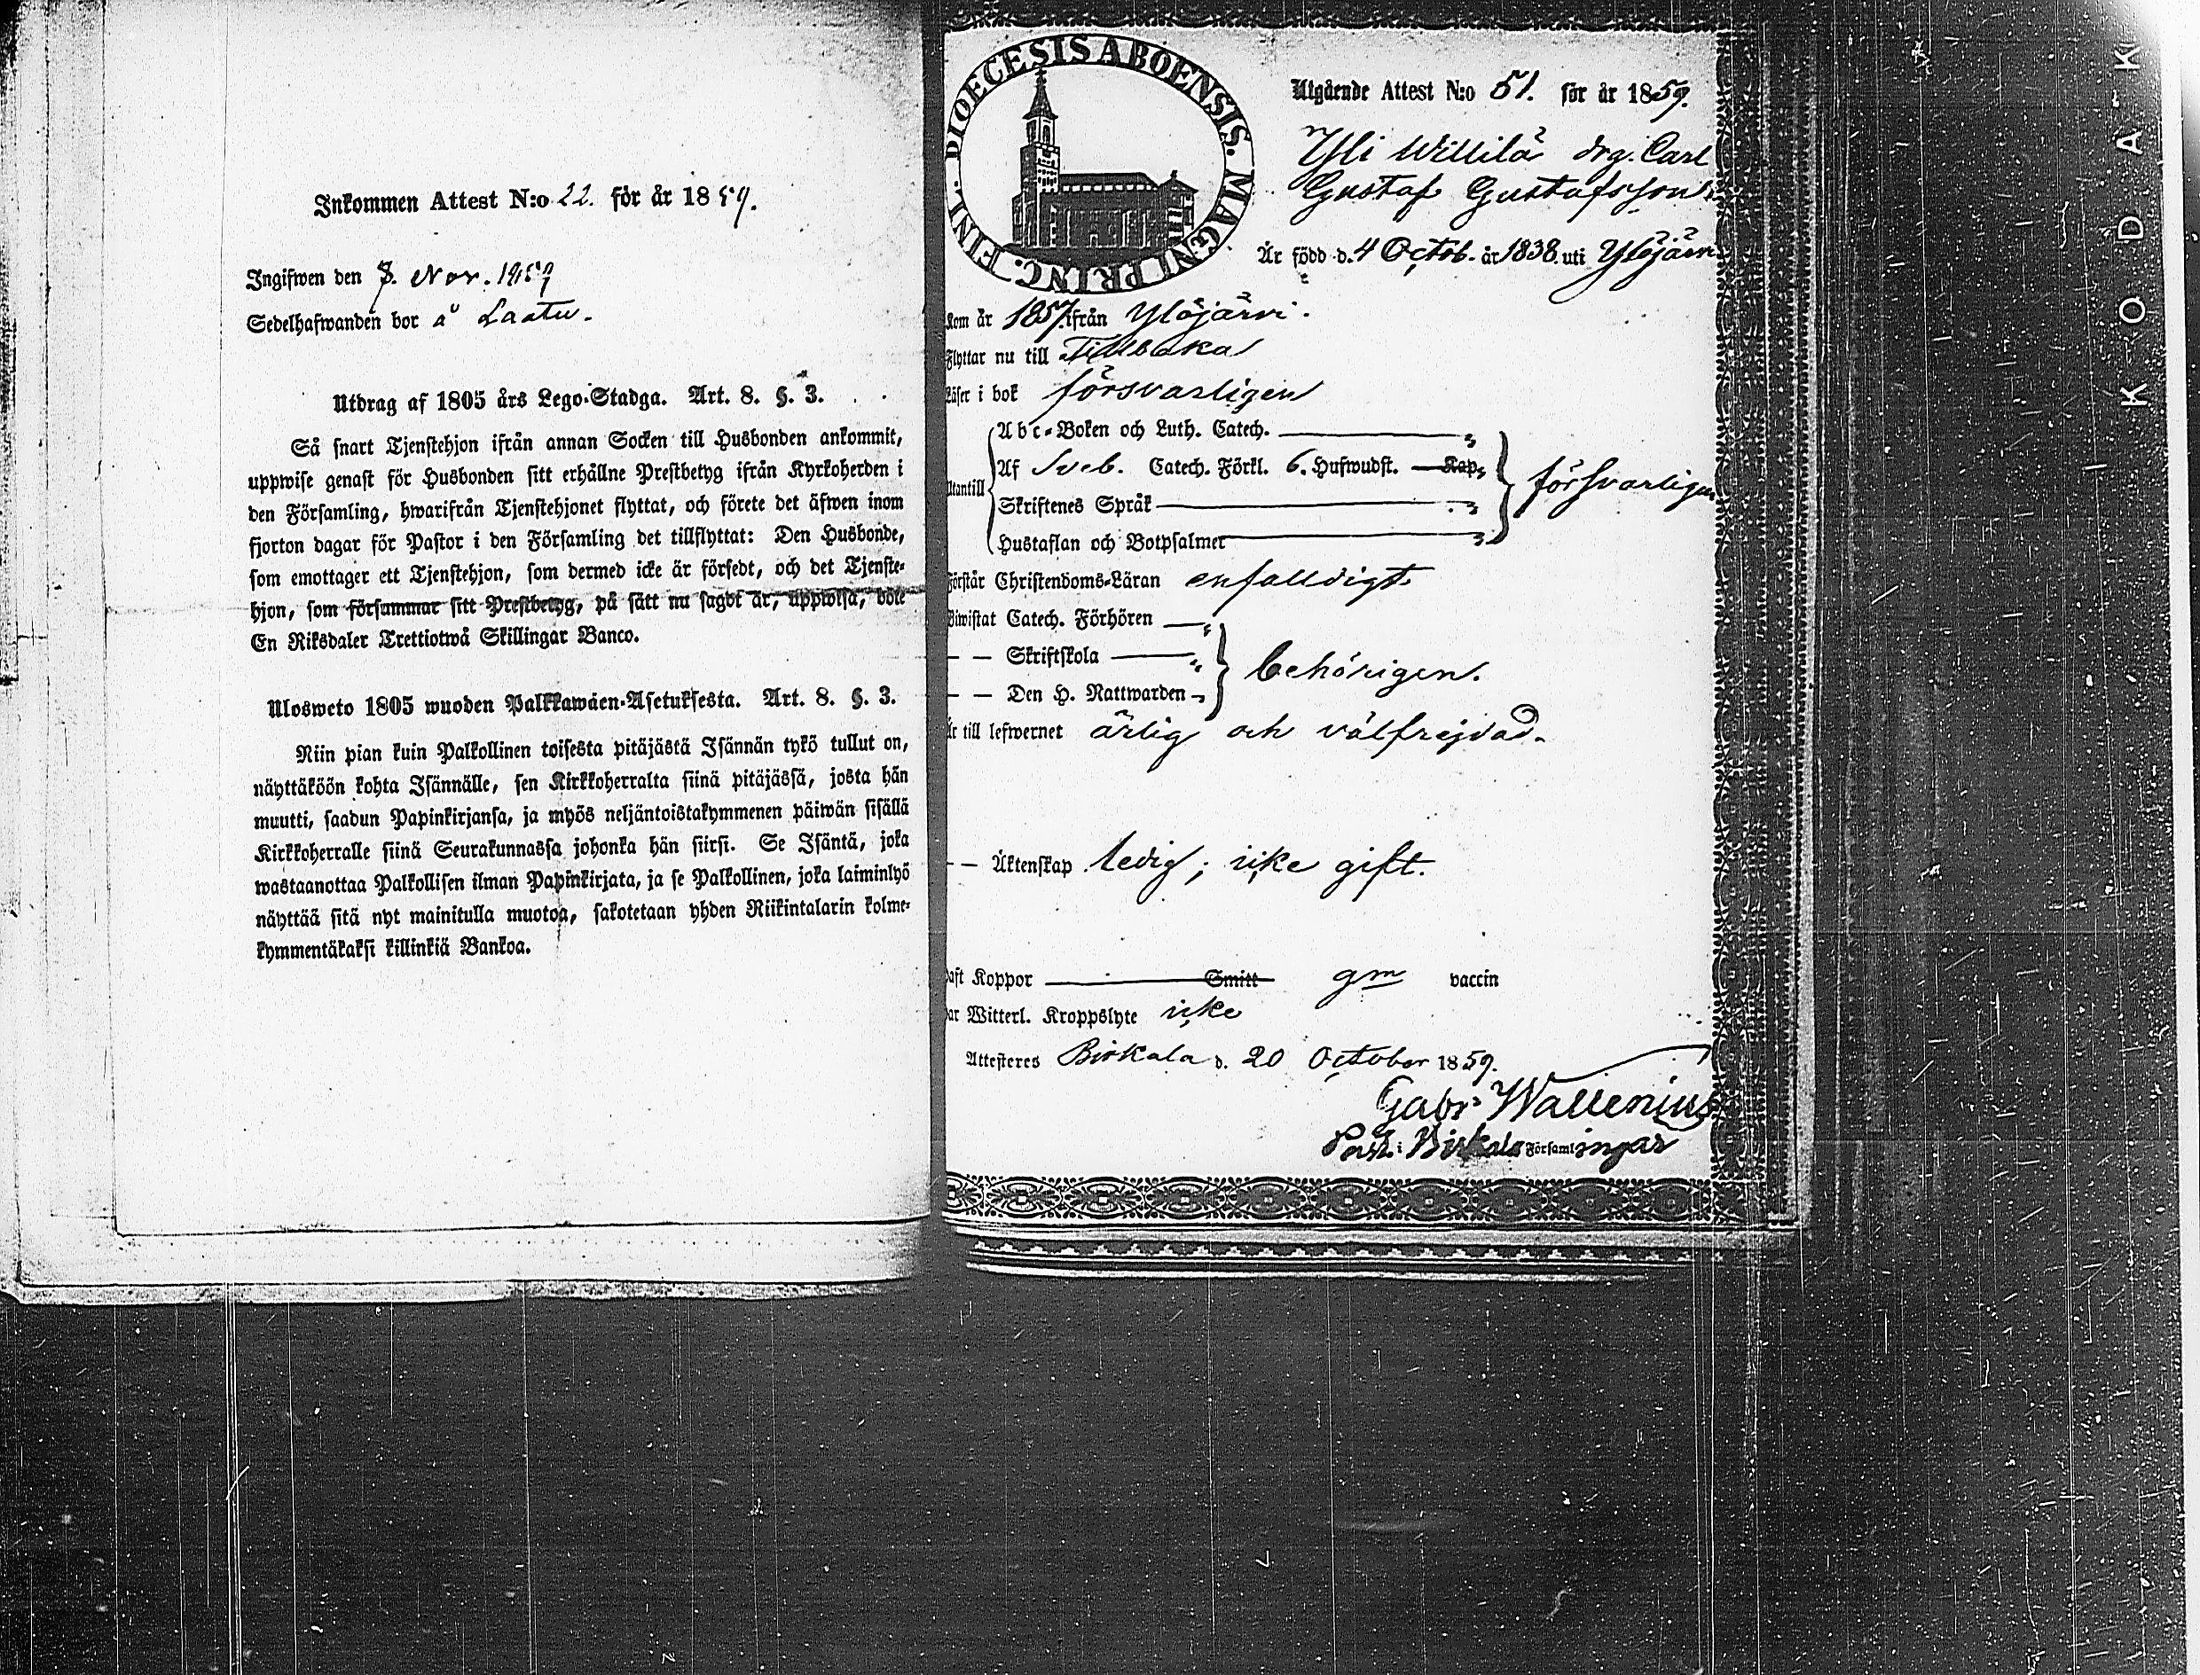 Inkommen Attest N:o 22. för år 1859.
Ingifwen den 7. Nov. 1859
Sedelhafwanden bor å Laatu.
Utdrag af 1805 års Lego-Stadga. Art. 8. §. 3.
Så snart Tjenstehjon ifrån annan Socken till Husbonden ankommit,
uppwise genast för Husbonden sitt erhållne Prestbetyg ifrån Kyrkoherden i
den Församling, hwarifrån Tjenstehjonet flyttat, och förete det äfwen inom
fjorton dagar för Pastor i den Församling det tillflyttat: Den Husbonde,
som emottager ett Tjenstehjon, som dermed icke är försedt, och det Tjenste-
hjon, som försummar sitt Prestbetyg, på sätt nu sagdt är, uppwisa, böte
En Riksdaler Trettiotwå Skillingar Banco.
Ulosweto 1805 wuoden Palkkawäen-Asetuksesta. Art. 8. §. 3.
Niin pian kuin Palkollinen toisesta pitäjästä Isännän tykö tullut on,
näyttäköön kohta Isännälle, sen Kirkkoherralta siinä pitäjässä, josta hän
muutti, saadun Papinkirjansa, ja myös neljäntoistakymmenen päiwän sisällä
Kirkkoherralle siinä Seurakunnassa johonka hän siirsi. Se Isäntä, joka
wastaanottaa Palkollisen ilman Papinkirjata, ja se Palkollinen, joka laiminlyö
näyttää sitä nyt mainitulla muotoa, sakotetaan yhden Riikintalarin kolme-
kymmentäkaksi killinkiä Bankoa.
DIOECESIS ABOENSIS. MAGNI PRINC. FINL.
Utgående Attest N:o 51. för år 1859.
Yli Willilä drg. Carl
Gustaf Gustafsson
Är född d. 4 Octob. år 1838. uti Ylöjärvi
Kom år 1857. ifrån Ylöjärvi.
Flyttar nu till Tillbaka
Läser i bok försvarligen
Abc-Boken och Luth. Catech.
Utantill Af Sveb. Catech. Förkl. 6. Hufwudst. Kap. försvarligen
Skriftenes Språk
Hustaflan och Botpsalmer
Förstår Christendoms-Läran enfalldigt
Biwistat Catech. Förhören
— — Skriftskola behörigen.
— — Den H. Nattwarden
Är till lefwernet ärlig och välfrejdad.
— — Äktenskap ledig; icke gift.
Haft Koppor Smitt gm vaccin
Har Witterl. Kroppslyte icke
Attesteres Birkala d. 20 October 1859.
Gabr. Wallenius
Past. i Birkala Församlingar
KODAK